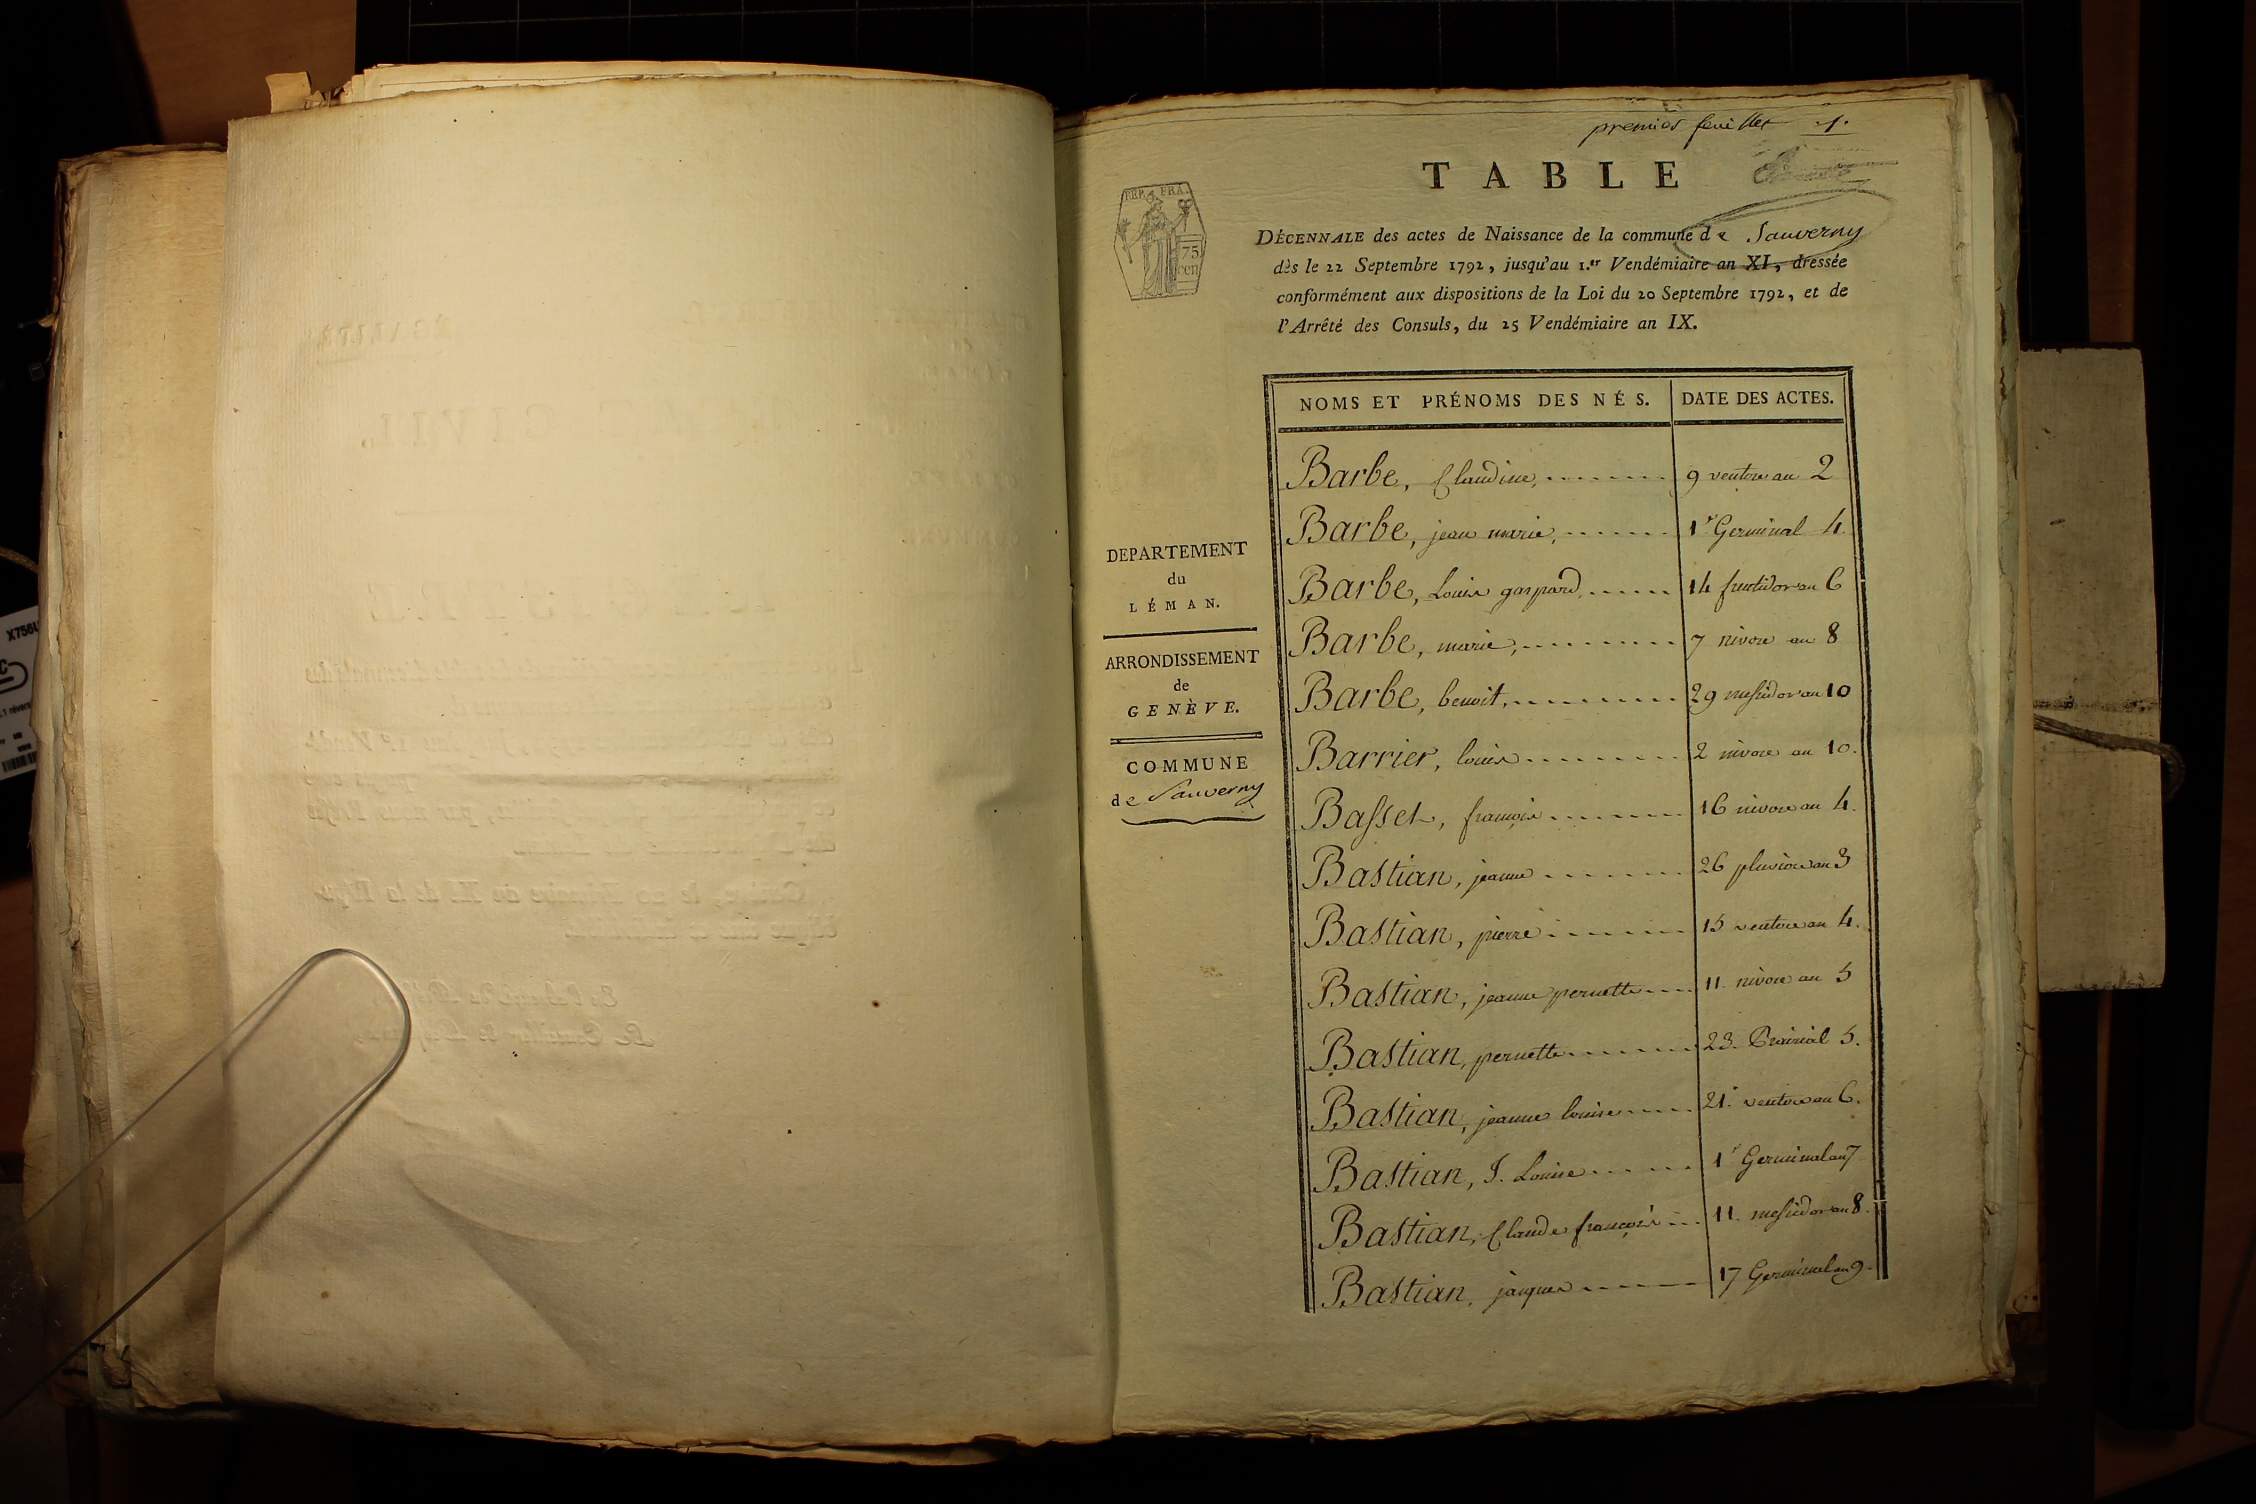 premier feuillet 1.
TABLE
REP. FRA.
75
cen
DÉCENNALE des actes de Naissance de la commune de Sauverny
dès le 22 Septembre 1792, jusqu'au 1.er Vendémiaire an XI, dressée
conformément aux dispositions de la Loi du 20 Septembre 1792, et de
l'Arrêté des Consuls, du 25 Vendémiaire an IX.
DEPARTEMENT
du
LÉMAN.
ARRONDISSEMENT
de
GENÈVE.
COMMUNE
de Sauverny
NOMS ET PRÉNOMS DES NÉS. DATE DES ACTES.
Barbe, Claudine, 9 ventose an 2
Barbe, jean marie, 1r Germinal 4.
Barbe, Louise gaspard, 14 fructidor an 6
Barbe, marie, 7 nivose an 8
Barbe, benoit, 29 messidor an 10
Barrier, louis 2 nivose an 10.
Basset, françois 16 nivose an 4.
Bastian, jeanne 26 pluviose an 3
Bastian, pierre 15 ventose an 4.
Bastian, jeanne pernette 11 nivose an 5
Bastian, pernette 23. Prairial 5.
Bastian, jeanne louise 21. ventose an 6.
Bastian, J. Louise 1r Germinal an 7
Bastian, Claude françois 11. messidor an 8.
Bastian, jacques 17 Germinal an 9.